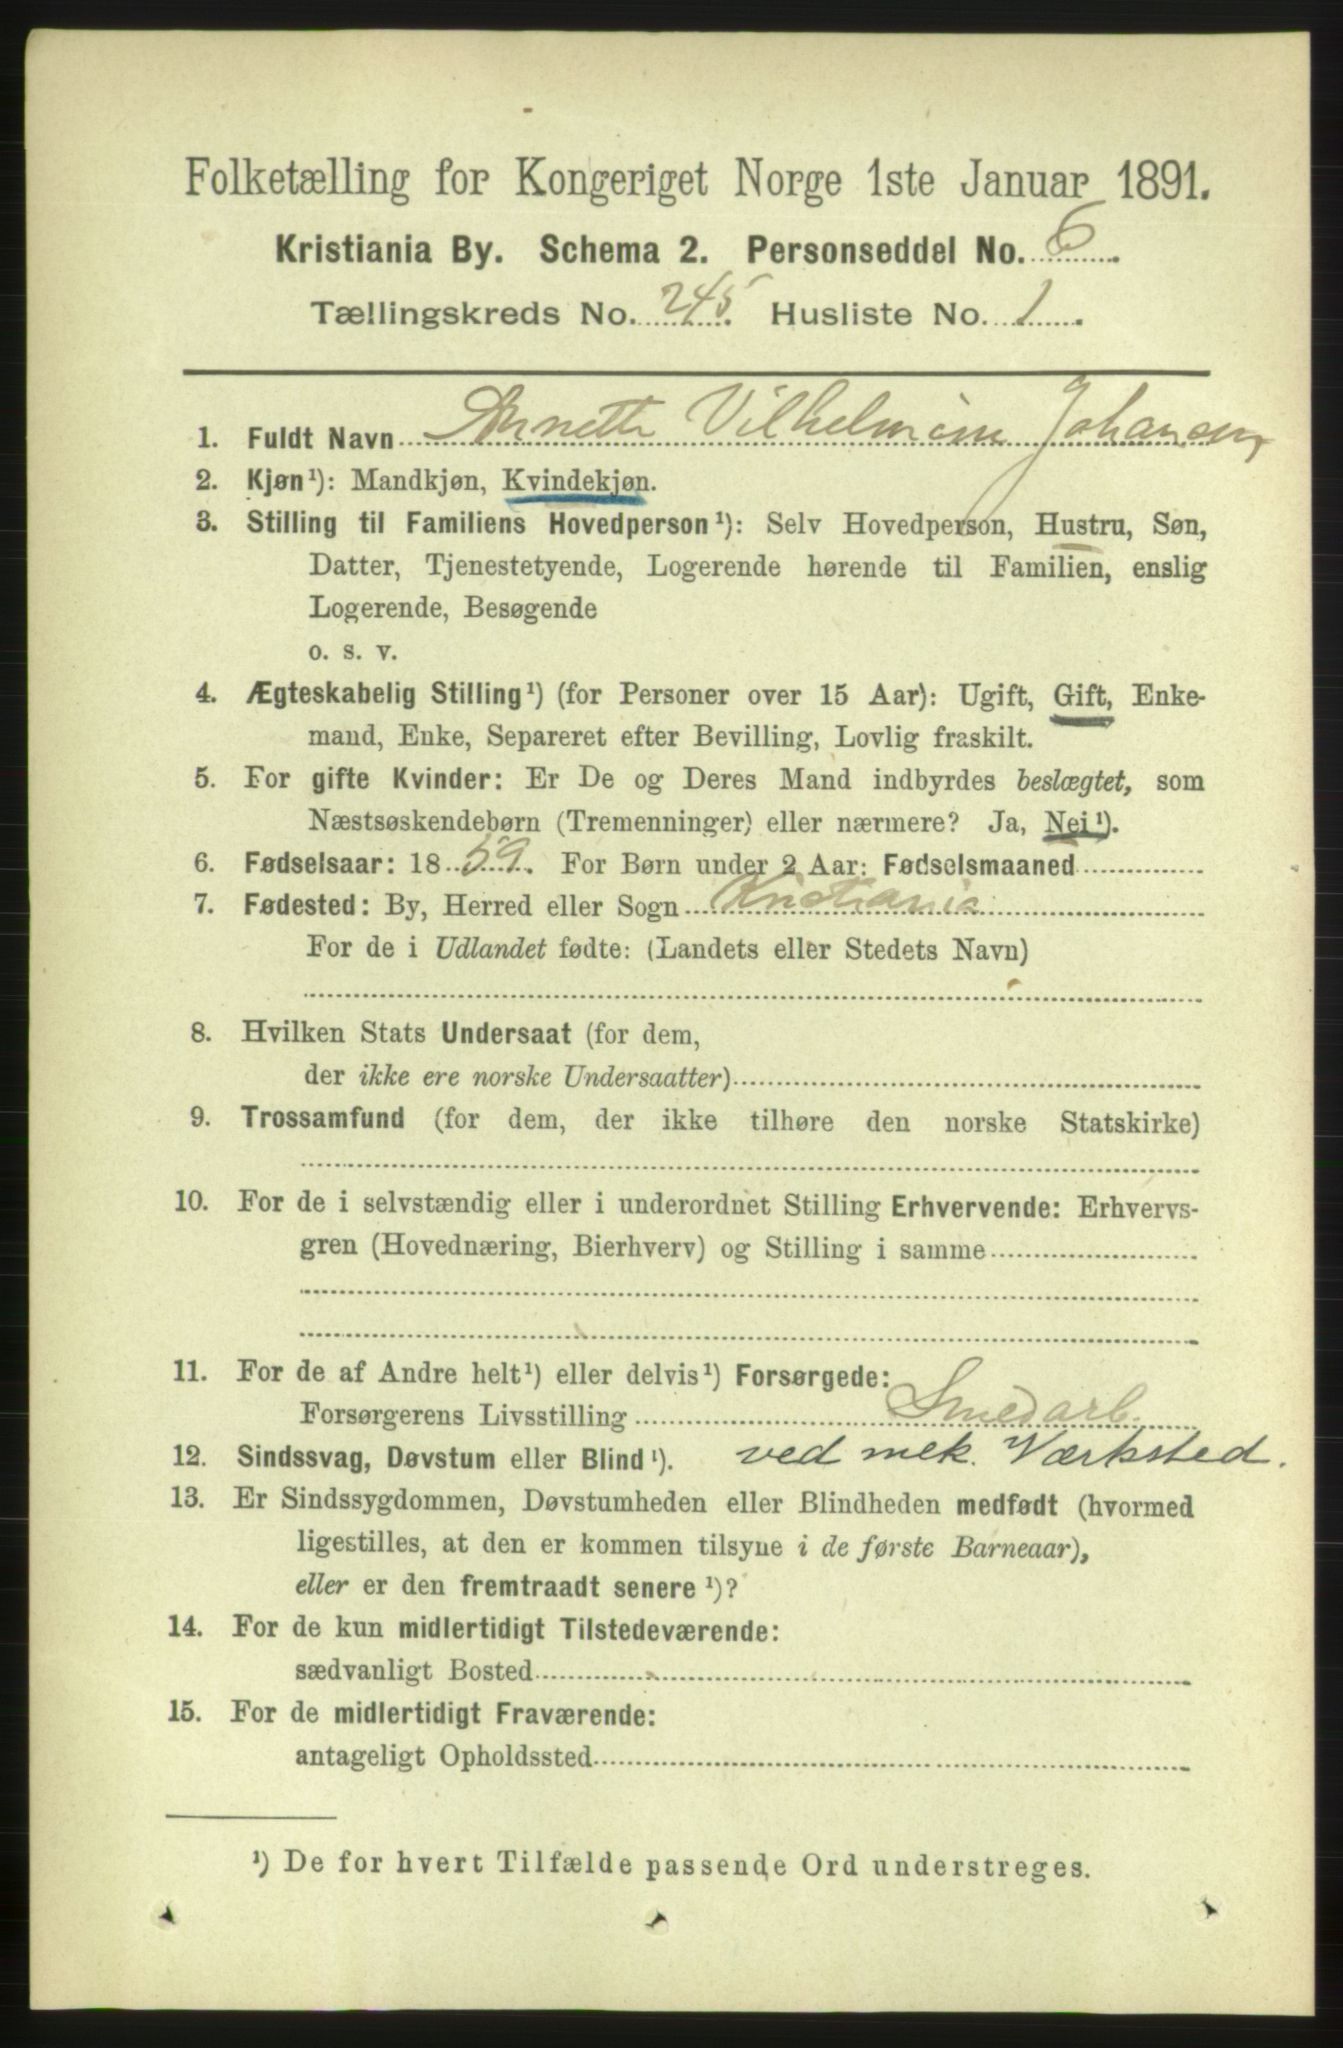 Folketælling for Kongeriget Norge 1ste Januar 1891.
Kristiania By. Schema 2. Personseddel No. 6
Tællingskreds No. 245 Husliste No. 1
1. Fuldt Navn Annette Vilhelmine Johansen
2. Kjøn¹): Mandkjøn, Kvindekjøn.
3. Stilling til Familiens Hovedperson¹): Selv Hovedperson, Hustru, Søn,
Datter, Tjenestetyende, Logerende hørende til Familien, enslig
Logerende, Besøgende
o. s. v.
4. Ægteskabelig Stilling¹) (for Personer over 15 Aar): Ugift, Gift, Enke-
mand, Enke, Separeret efter Bevilling, Lovlig fraskilt.
5. For gifte Kvinder: Er De og Deres Mand indbyrdes beslægtet, som
Næstsøskendebørn (Tremenninger) eller nærmere? Ja, Nei¹).
6. Fødselsaar: 1859. For Børn under 2 Aar: Fødselsmaaned
7. Fødested: By, Herred eller Sogn Kristiania
For de i Udlandet fødte: (Landets eller Stedets Navn)
8. Hvilken Stats Undersaat (for dem,
der ikke ere norske Undersaatter)
9. Trossamfund (for dem, der ikke tilhøre den norske Statskirke)
10. For de i selvstændig eller i underordnet Stilling Erhvervende: Erhvervs-
gren (Hovednæring, Bierhverv) og Stilling i samme
11. For de af Andre helt¹) eller delvis¹) Forsørgede:
Forsørgerens Livsstilling Smedarb.
12. Sindssvag, Døvstum eller Blind¹). ved mek. Værksted.
13. Er Sindssygdommen, Døvstumheden eller Blindheden medfødt (hvormed
ligestilles, at den er kommen tilsyne i de første Barneaar),
eller er den fremtraadt senere¹)?
14. For de kun midlertidigt Tilstedeværende:
sædvanligt Bosted
15. For de midlertidigt Fraværende:
antageligt Opholdssted
¹) De for hvert Tilfælde passende Ord understreges.